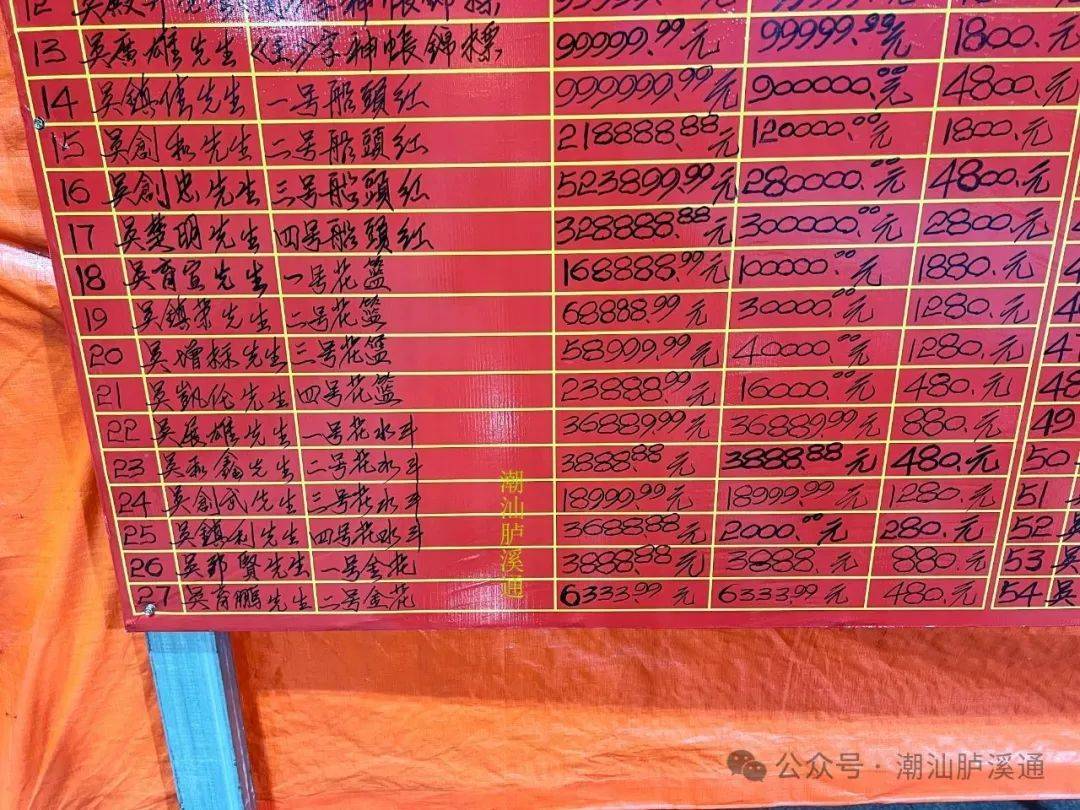 12 吳 先生 字神帳錦標
13 吳廣雄先生 《玉》字神帳錦標 99999.99元 99999.99元 1800.元
14 吳鎮佳先生 一号船頭紅 999999.99元 900000.00元 4800.元
15 吳創和先生 二号船頭紅 218888.88元 120000.00元 1800.元
16 吳創忠先生 三号船頭紅 523899.99元 280000.00元 4800.元
17 吳楚明先生 四号船頭紅 328888.88元 300000.00元 2800.元
18 吳育宣先生 一号花籃 168888.99元 100000.00元 1880.元
19 吳鎮榮先生 二号花籃 68888.99元 30000.00元 1280.元
20 吳增標先生 三号花籃 58999.99元 40000.00元 1280.元 47
21 吳凱伦先生 四号花籃 23888.99元 16000.00元 480.元 48
22 吳展雄先生 一号花水斗 36889.99元 36889.99元 880.元 49
23 吳和鑫先生 二号花水斗 3888.88元 3888.88元 480.元 50
24 吳創武先生 三号花水斗 18999.99元 18999.99元 1280.元 51
25 吳鎮利先生 四号花水斗 3688.88元 2000.00元 280.元 52 吳
26 吳邦賢先生 一号金花 3888.88元 3888.元 880.元 53 吳
27 吳育鵬先生 二号金花 6333.99元 6333.99元 480.元 54 吳
潮汕胪溪通
公众号·潮汕胪溪通